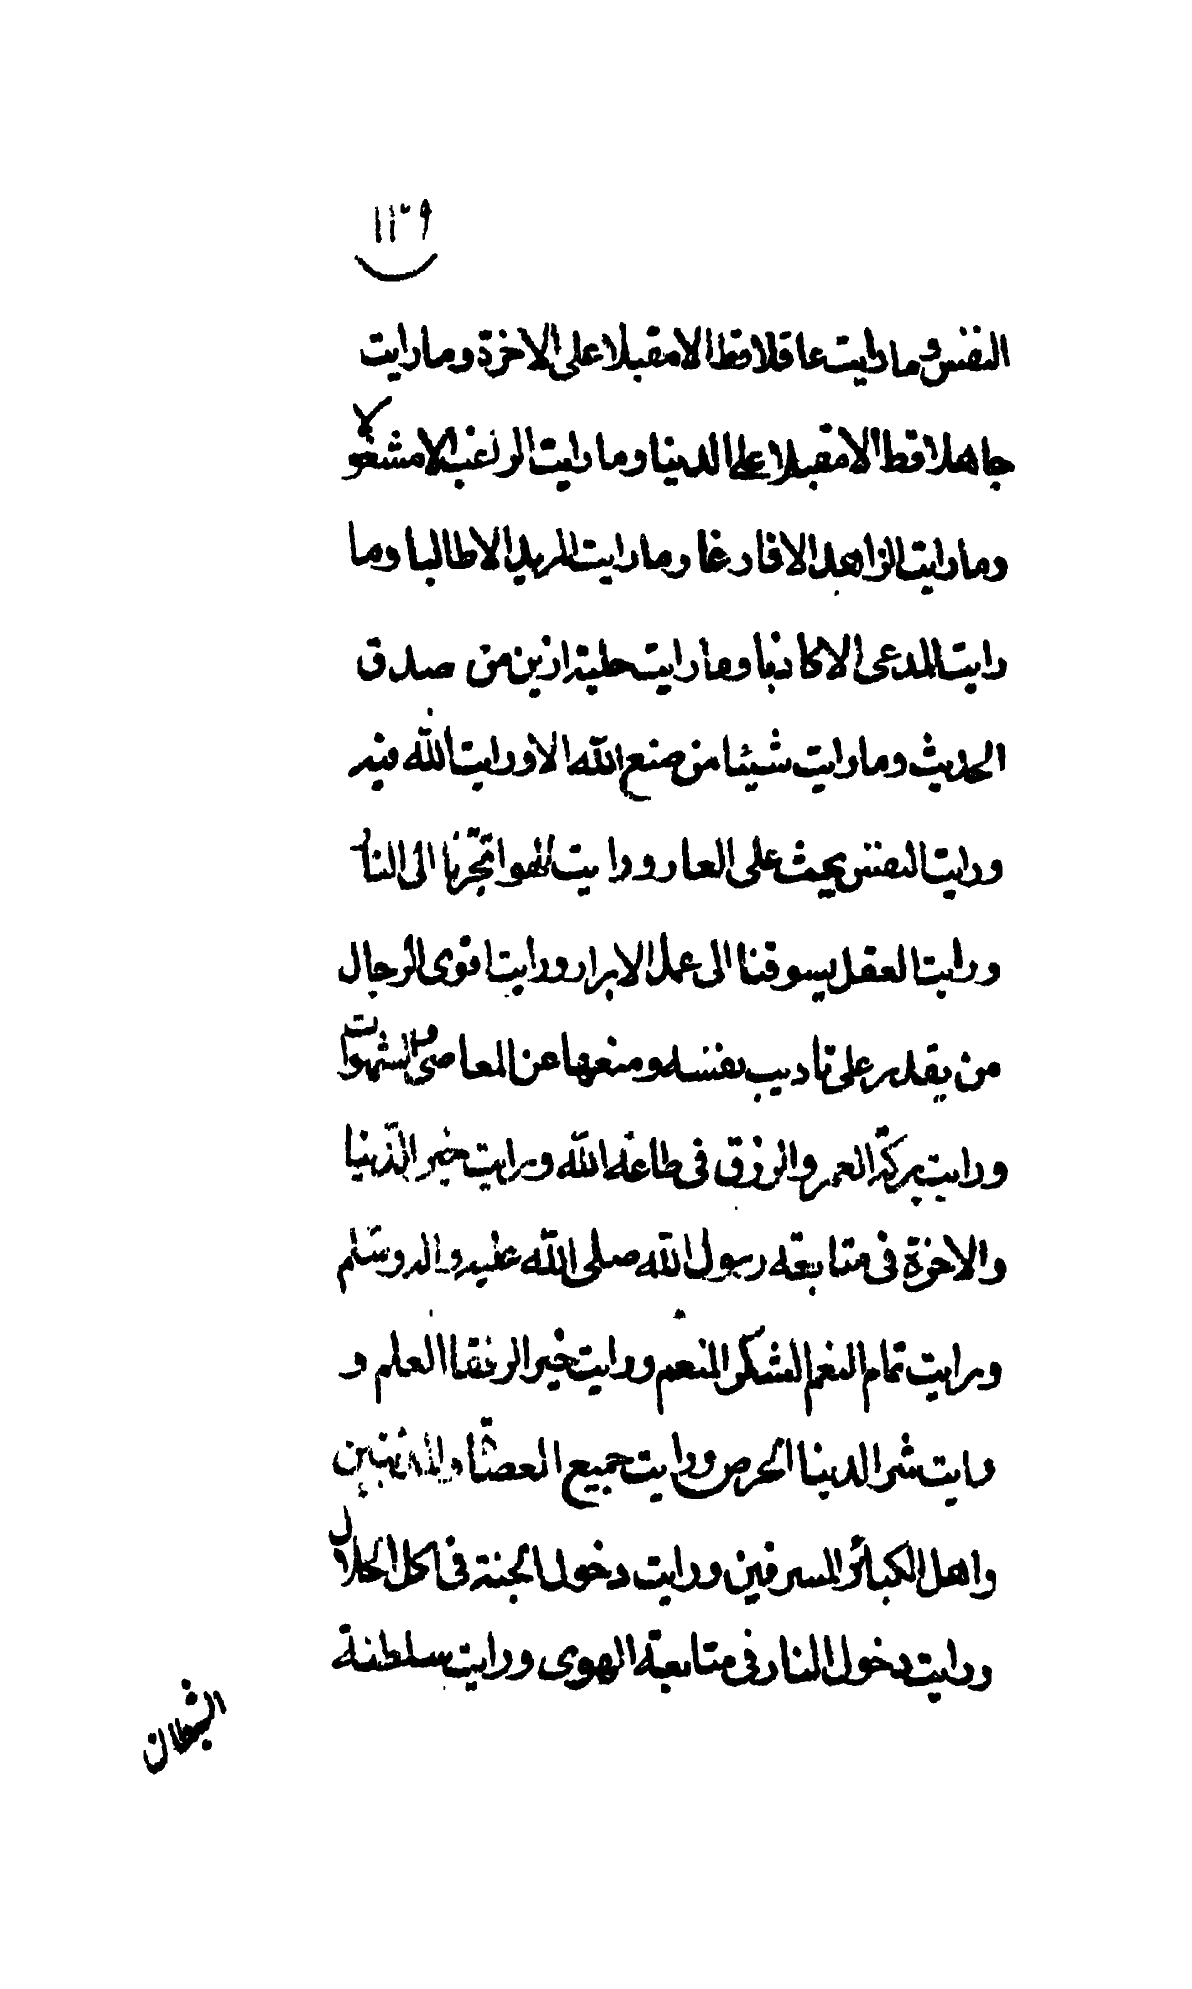 ١١٣٩
النفس وما رايت عاقلا قط الا مقبلا على الاخرة وما رايت
جاهلا قط الا مقبلا على الدنيا وما رايت الراغب الا مشغولا
وما رايت الزاهد الا فارغا وما رايت المريد الا طالبا وما
رايت المدعى الا كاذبا وما رايت حلية ازين من صدق
الحديث وما رايت شيئا من صنع الله الا ورايت الله فيه
ورايت النفس يحث على العار ورايت الهوا تجرنا الى النار
ورايت العقل يسوقنا الى عمل الابرار ورايت اقوى الرجال
من يقدر على تاديب نفسه ومنعها عن المعاصى والشهوات
ورايت بركة العمر والرزق فى طاعة الله ورايت خير الدنيا
والاخرة فى متابعة رسول الله صلى الله عليه واله وسلم
ورايت تمام النعم الشكر المنعم ورايت خير الرفقا العلم و
رايت شر الدنيا الحرص ورايت جميع العصاة والمذنبين
واهل الكبائر المسرفين ورايت دخول الجنة فى اكل الحلال
ورايت دخول النار فى متابعة الهوى ورايت سلطنة
الشيطان